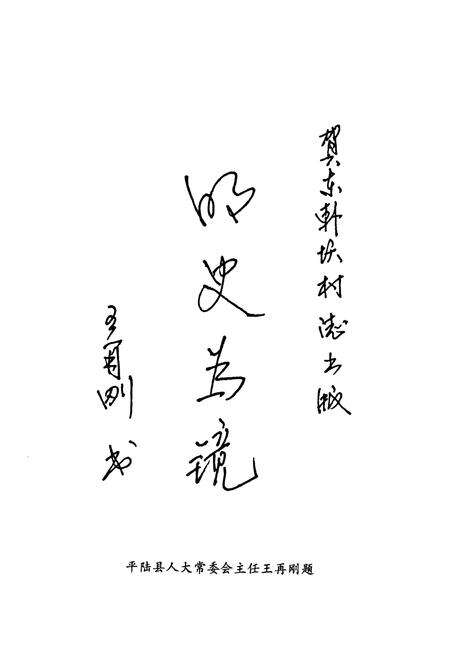 贺东韩村志出版
明史为镜
王再刚 书
平陆县人大常委会主任王再刚题